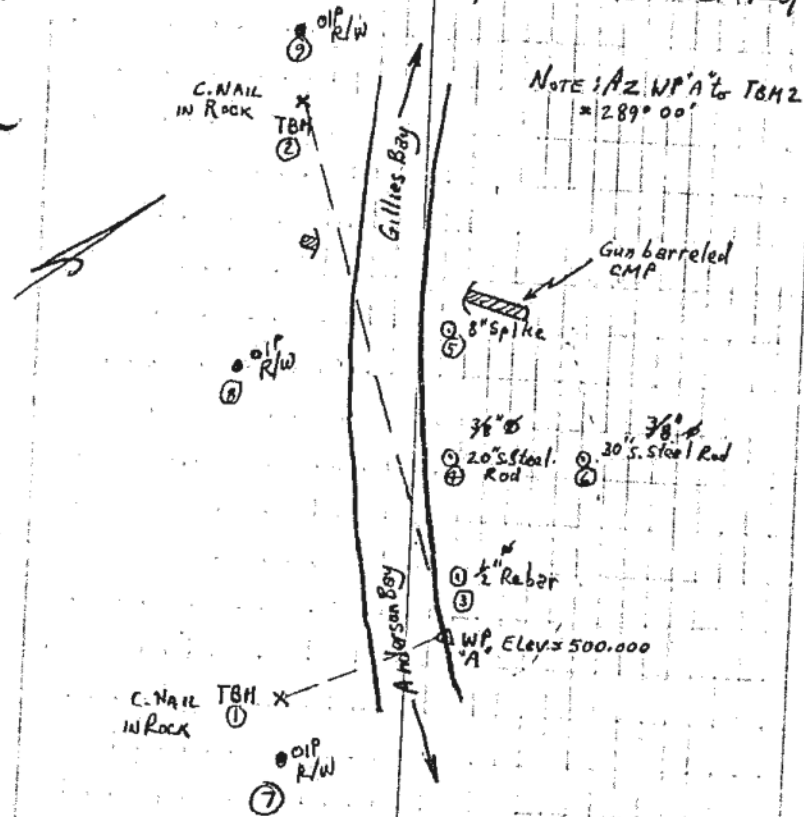 OIP
R/W
9
C. NAIL
IN ROCK
TBM
2
NOTE: AZ WP "A" to TBM 2
= 289° 00'
Gillies Bay
Gun barreled
CMP
8" Spike
5
OIP
R/W
8
3/8" ø
20" s. Steel
Rod
4
3/8" ø
30" s. Steel Rod
6
ø
1/2" Rebar
3
Anderson Bay
WP
"A"
Elev = 500.000
C. NAIL
IN ROCK
TBM
1
OIP
R/W
7